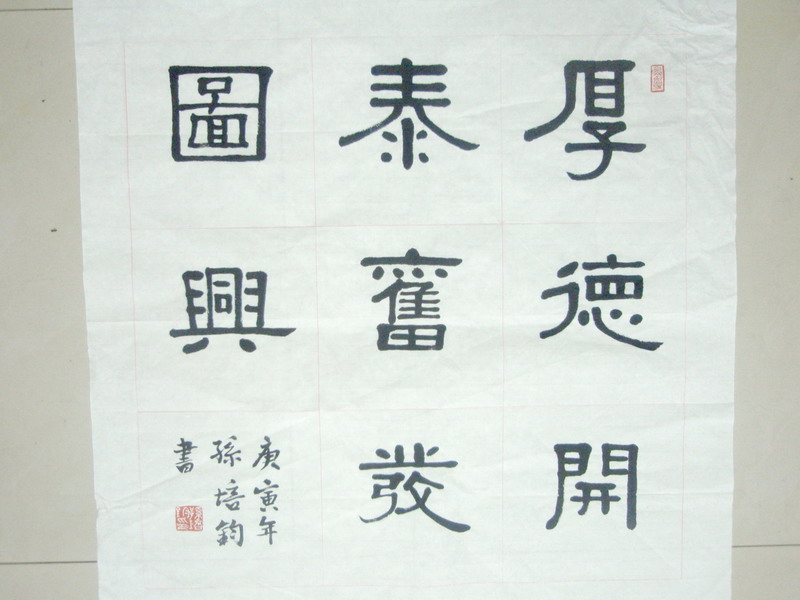 厚德開
泰奮發
圖興
庚寅年
孫培鈞
書